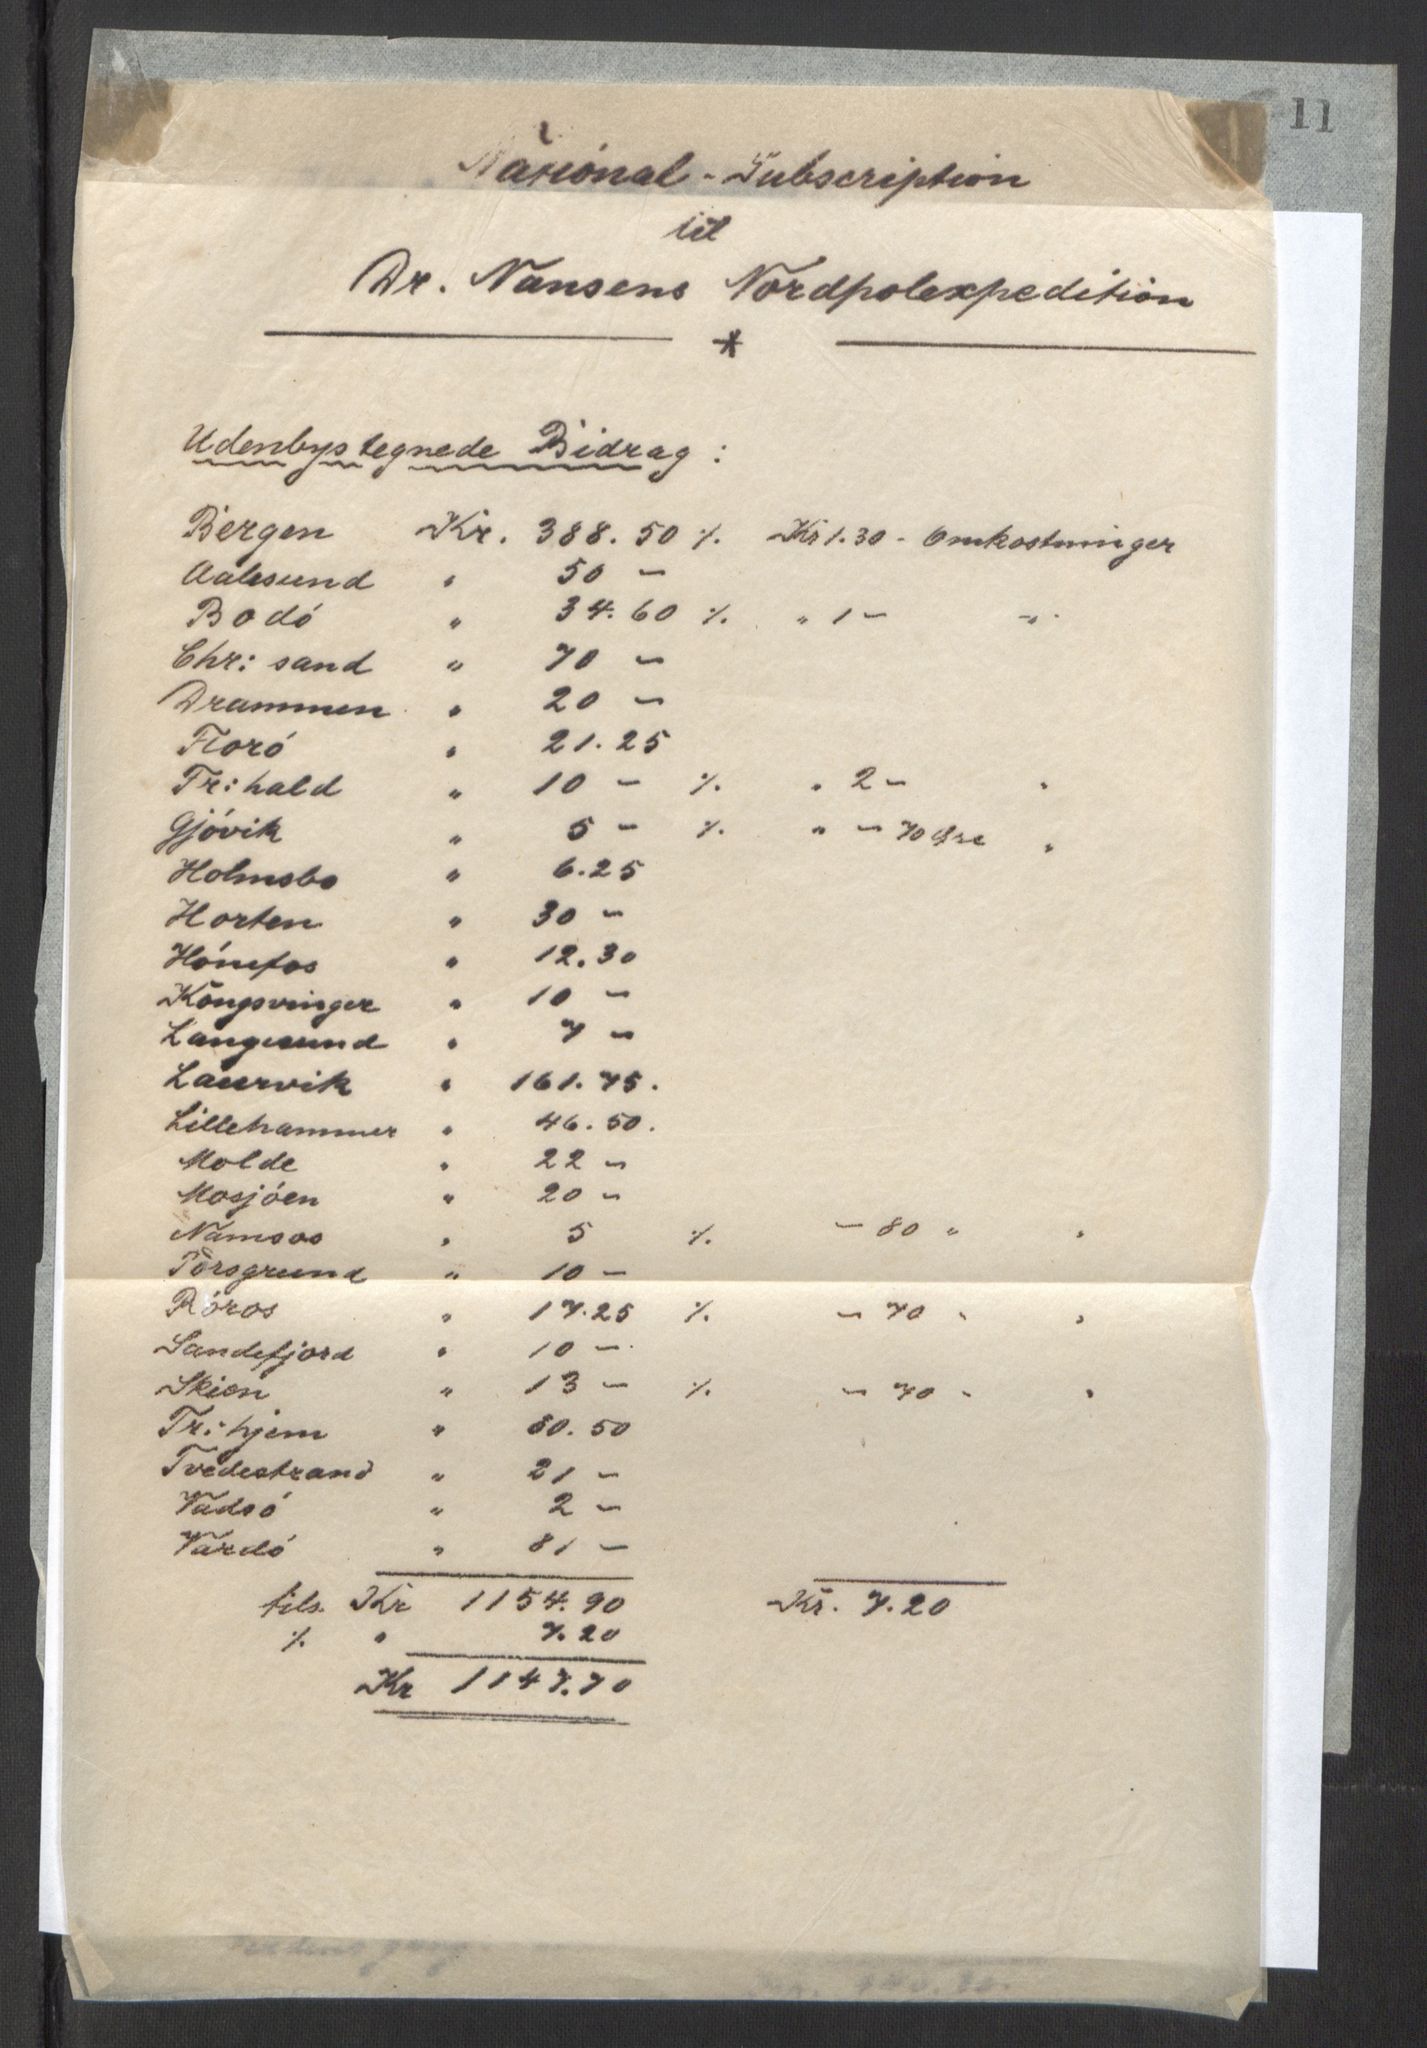 11
National-Subscription
til
Dr. Nansens Nordpolexpedition
*
Udenbystegnede Bidrag:
Bergen Kr. 388.50 ٪ Kr 1.30 - Omkostninger
Aalesund " 50 -
Bodó " 34.60 ٪ " 1 - "
Chr: sand " 70 -
Drammen " 20 -
Floró " 21.25
Fr: hald " 10 - ٪ " 2 - "
Gjóvik " 5 - ٪ " - 70 Øre "
Holmsbo " 6.25
Horten " 30 -
Hónefos " 12.30
Kongsvinger " 10 -
Langesund " 7 -
Laurvik " 161.75.
Lillehammer " 46.50.
Molde " 22 -
Mosjóen " 20 -
Namsos " 5 ٪ - 80 " "
Porsgrund " 10 -
Róros " 17.25 ٪ - 70 " "
Sandefjord " 10 -
Skien " 13 - ٪ - 70 - "
Tr: hjem " 80.50
Tvedestrand " 21 -
Vadsó " 2 -
Vardó " 81 -
tils. Kr 1154.90 Kr. 7.20
٪ " 7.20
Kr 1147.70